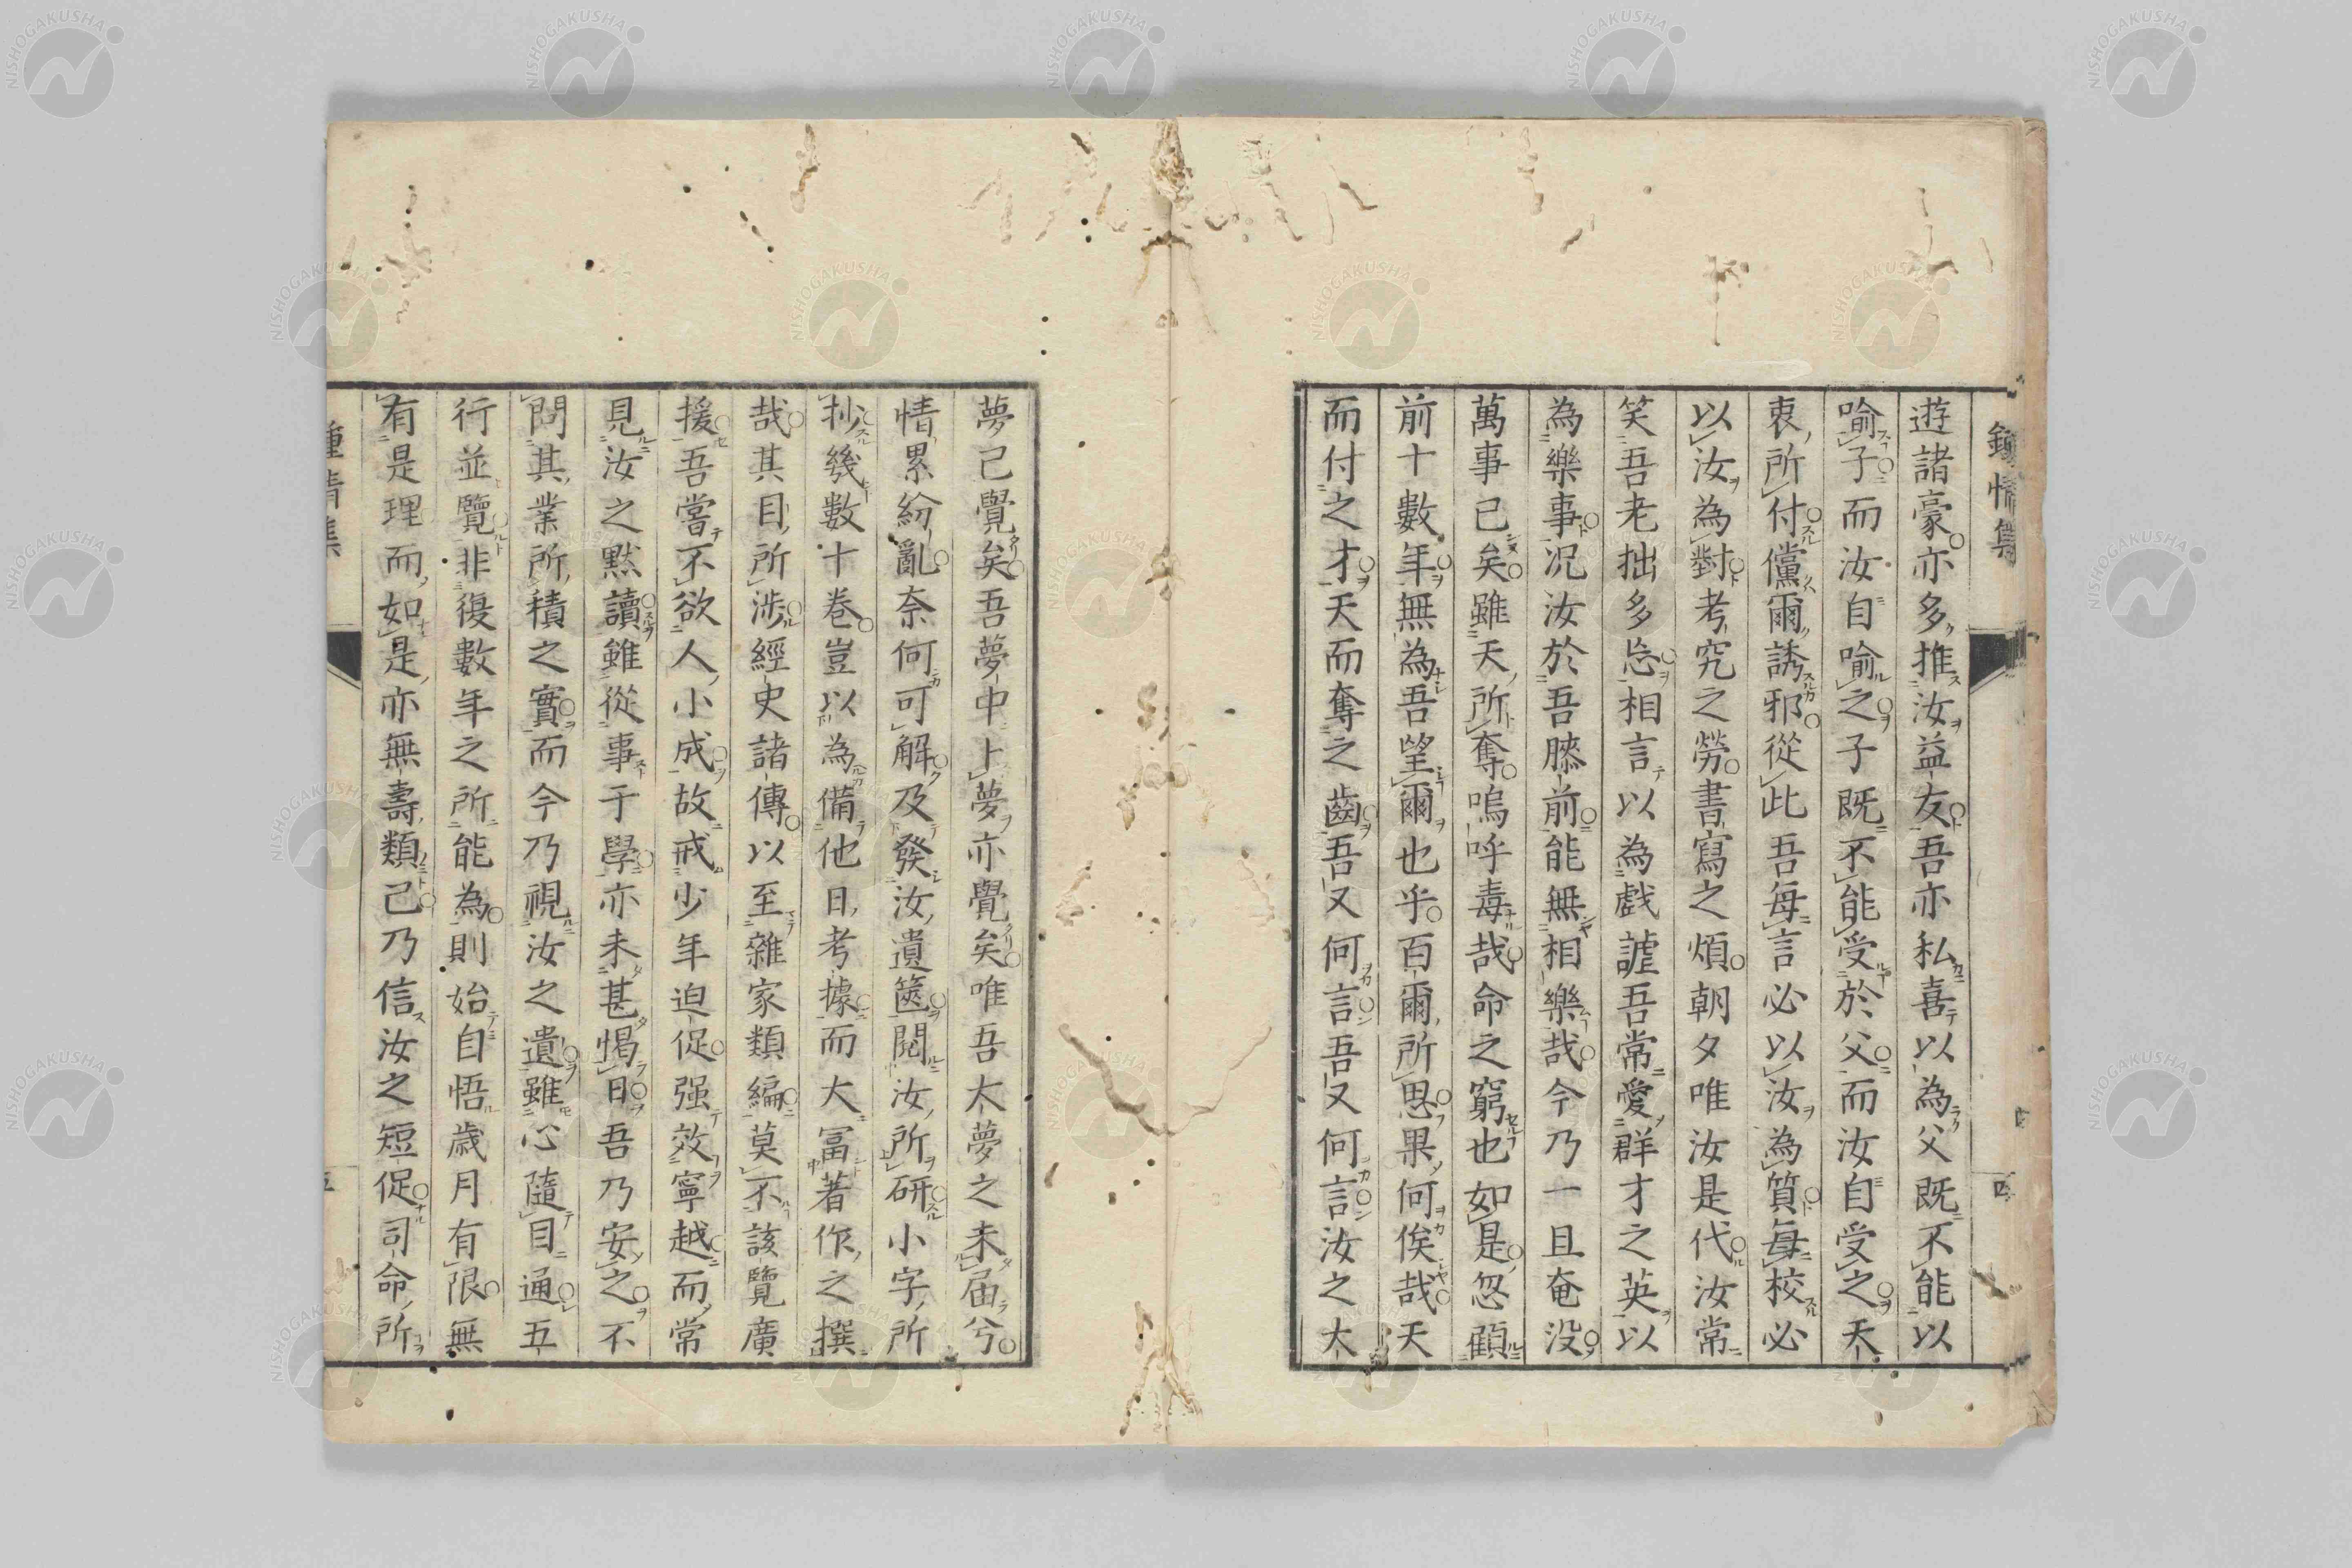 鍾情集
四
遊諸豪亦多推汝益友吾亦私喜以為父既不能以
喻子而汝自喻之子既不能受於父而汝自受之天
衷所付儻爾誘邪從此吾每言必以汝為質每校必
以汝為對考究之勞書寫之煩朝夕唯汝是代汝常
笑吾老拙多忘相言以為戲謔吾常愛群才之英以
為樂事況汝於吾膝前能無相樂哉今乃一旦奄没
萬事已矣雖天所奪嗚呼毒哉命之窮也如是忽顧
前十數年無為吾望爾也乎百爾所思果何俟哉天
而付之才天而奪之齒吾又何言吾又何言汝之大
夢已覺矣吾夢中上夢亦覺矣唯吾大夢之未届兮
情累紛亂奈何可解及發汝遺篋閲汝所研小字所
抄幾數十卷豈以為備他日考據而大冨著作之撰
哉其目所涉經史諸傳以至雜家類編莫不該覽廣
援吾嘗不欲人小成故戒少年迫促强效寧越而常
見汝之黙讀雖從事于學亦未甚愒日吾乃安之不
問其業所積之實而今乃視汝之遺雖心隨目通五
行並覽非復數年之所能為則始自悟歳月有限無
有是理而如是亦無壽類已乃信汝之短促司命所
鍾情集
五
NISHOGAKUSHA